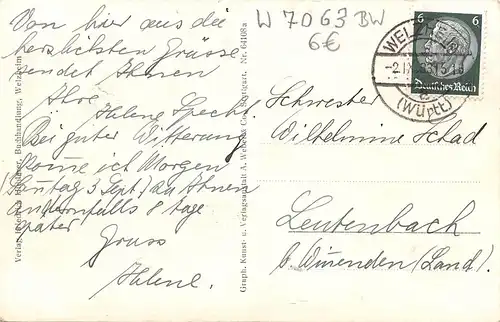 Von hier aus die
herzlichsten Grüsse
sendet Ihnen
Ihre
Helene Specht.
Bei guter Witterung
komme ich Morgen
(Sontag 3 Sept.) zu Ihnen
andernfalls 8 tage
später
Gruss
Helene.
Buchhandlung, Welzheim
Graph. Kunst- u. Verlagsanstalt A. Weber & Co., Stuttgart. Nr. 64108a
W 7063 BW
6€
6 6
Deutsches Reich
WELZHEIM
(WÜRTT)
Schwester
Wilhelmine Schad
Leutenbach
b. Winenden (Land).